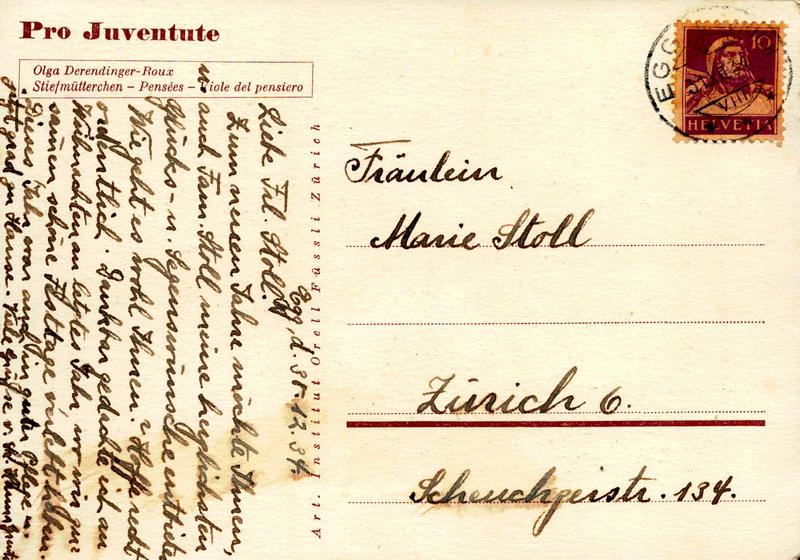 Pro Juventute
Olga Derendinger-Roux
Stiefmütterchen – Pensées – Viole del pensiero
EGG
VIII
10
HELVETIA
Art. Institut Orell Füssli Zürich
Fräulein
Marie Stoll
Zürich 6.
Scheuchzerstr. 134.
Egg, d. 30.12.34.
Liebe Frl. Stoll!
Zum neuen Jahre möchte Ihnen,
u. auch Fam. Stoll meine herzlichsten
Glücks- u. Segenswünsche
Wie geht es wohl Ihnen? Hoffe recht
ordentlich. Dankbar gedachte ich an
Weihnachten an letztes Jahr, wo wir
schöne Festtage verlebt haben.
Dieses Jahr war auch in guter Pflege u.
gut zu Hause. Viele Grüsse